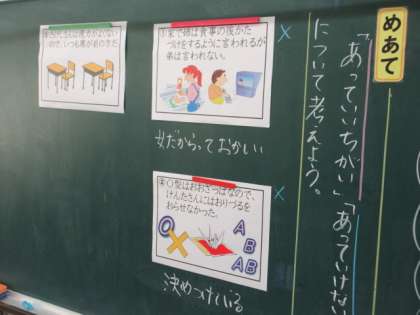 めあて
「あっていいちがい」「あっていけない
について考えよう。
①家で姉は食事の後かた
づけをするように言われるが
弟は言われない。
×
女だからっておかしい
いので、いつも席が前の方だ
④〇型はおおざっぱなので、
けんたさんにはおりづるを
おらせなかった。
×
O
A
B
AB
決めつけている